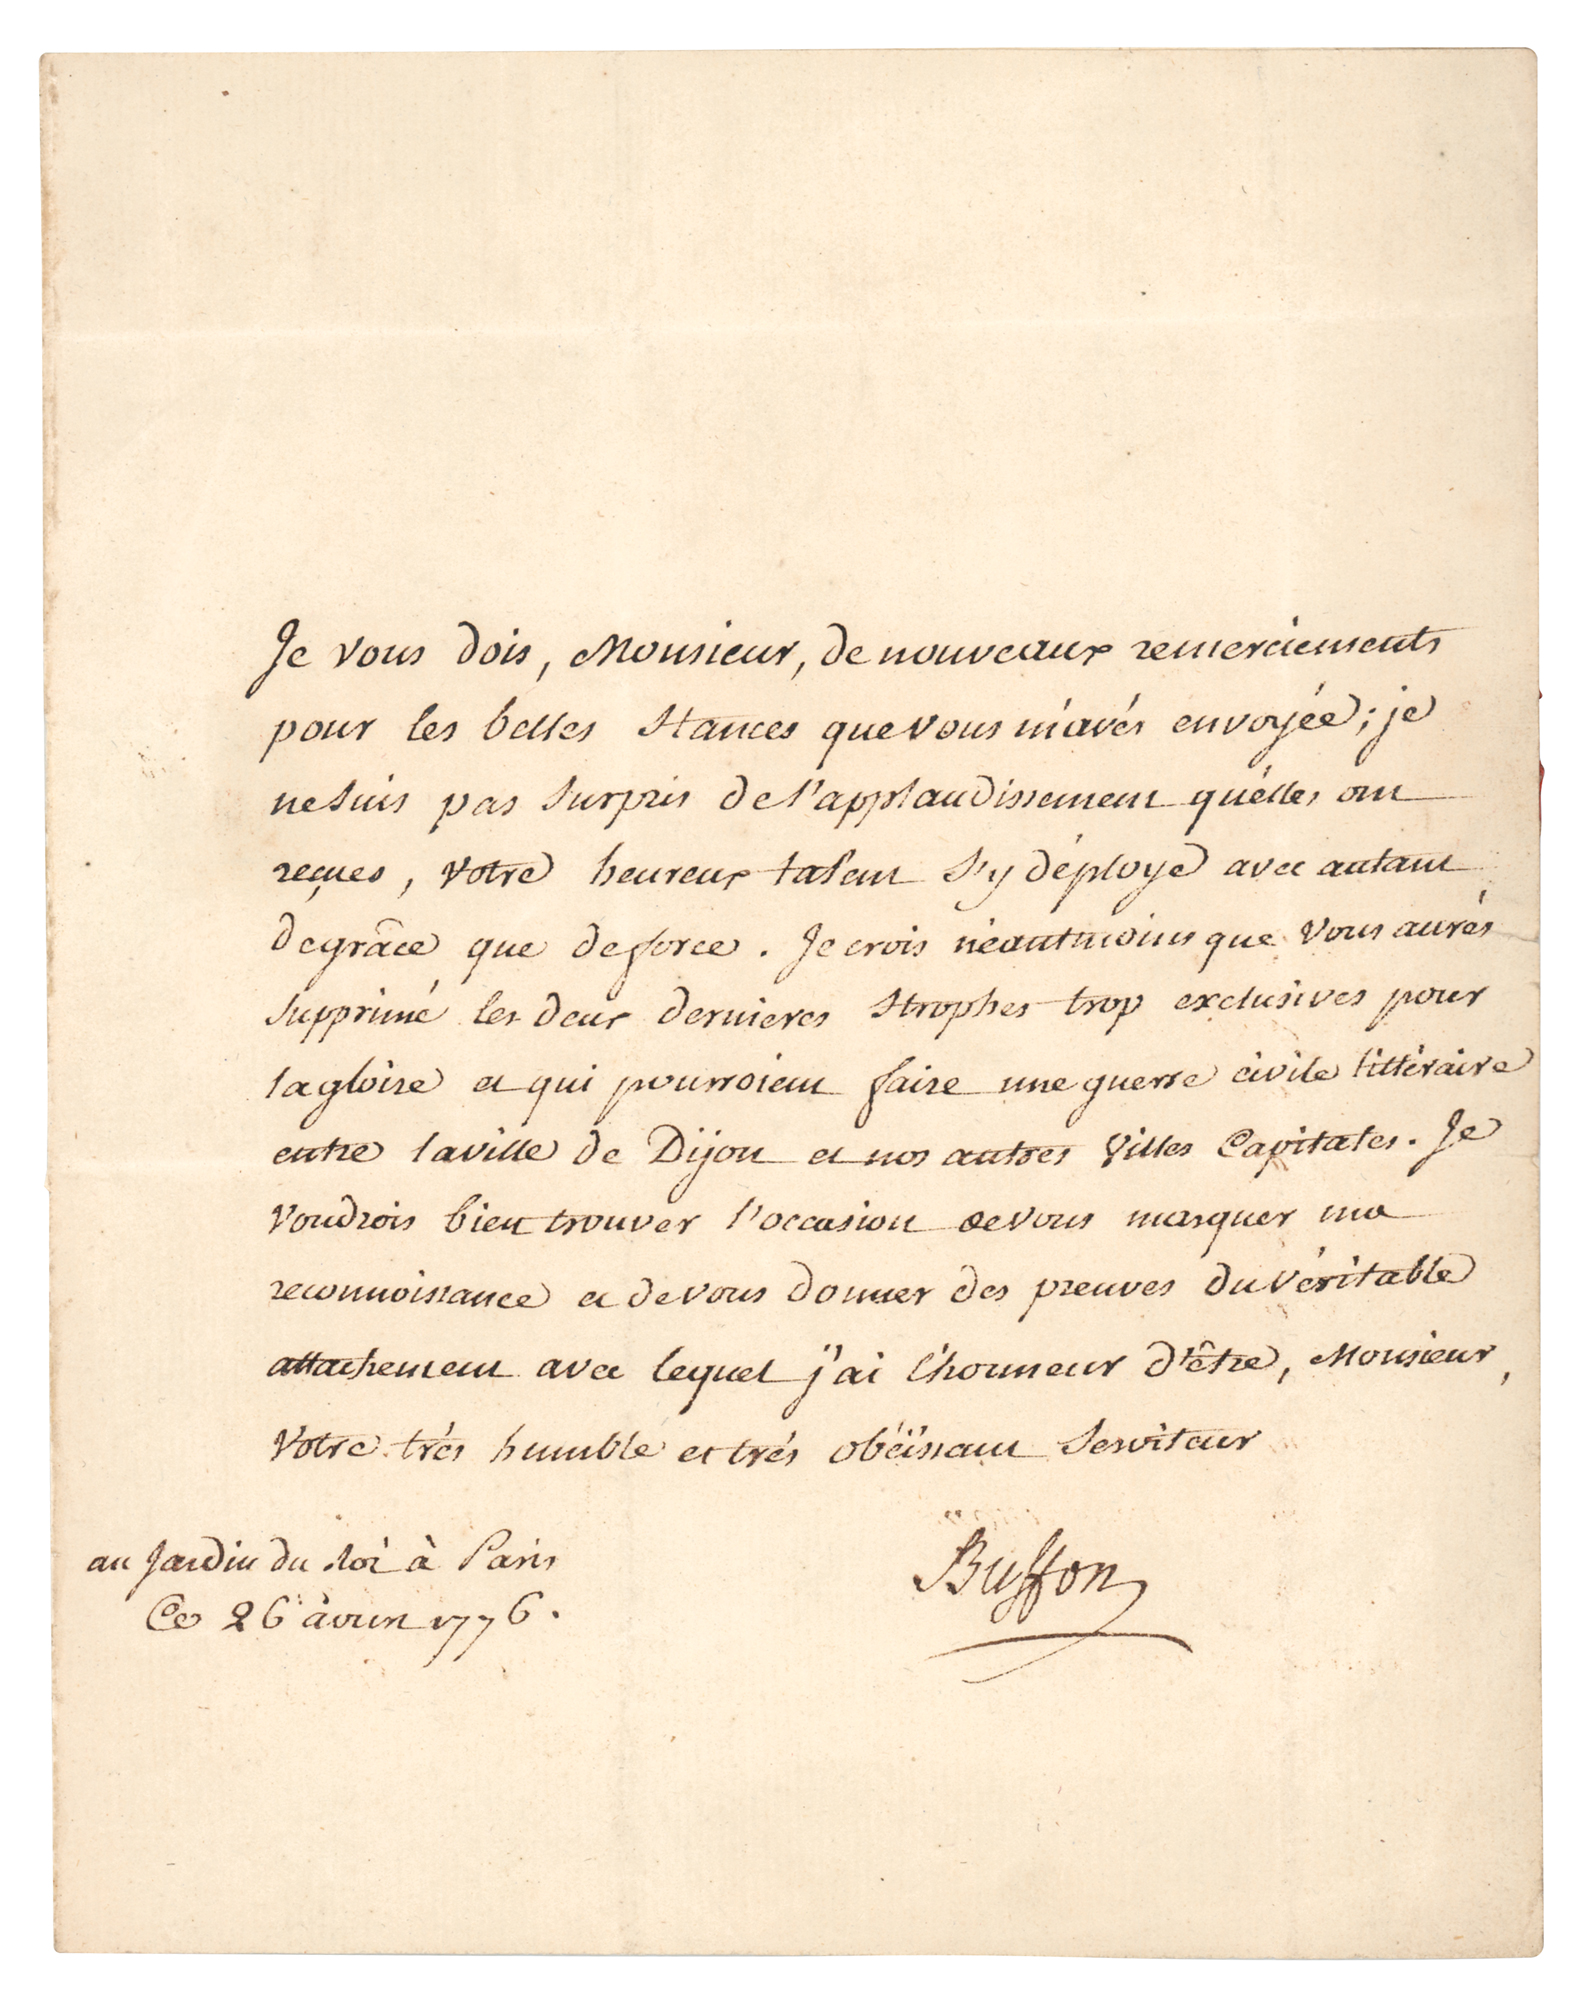 Je vous dois, Monsieur, de nouveaux remerciements
pour les belles Stances que vous m'avés envoyée; je
ne suis pas surpris de l'applaudissement qu'élles ont
reçues, votre heureux talent s'y déploye avec autant
de grâce que de force. Je crois néantmoins que vous aurés
supprimé les deux dernieres Strophes trop exclusives pour
la gloire et qui pourroient faire une guerre civile littéraire
entre la ville de Dijon et nos autres Villes Capitales. Je
voudrois bien trouver l'occasion de vous marquer ma
reconnoissance et de vous donner des preuves du véritable
attachement avec lequel j'ai l'honneur d'être, Monsieur,
Votre trés humble et trés obéïssant Serviteur
au Jardin du roi à Paris
Ce 26 avril 1776.
Buffon